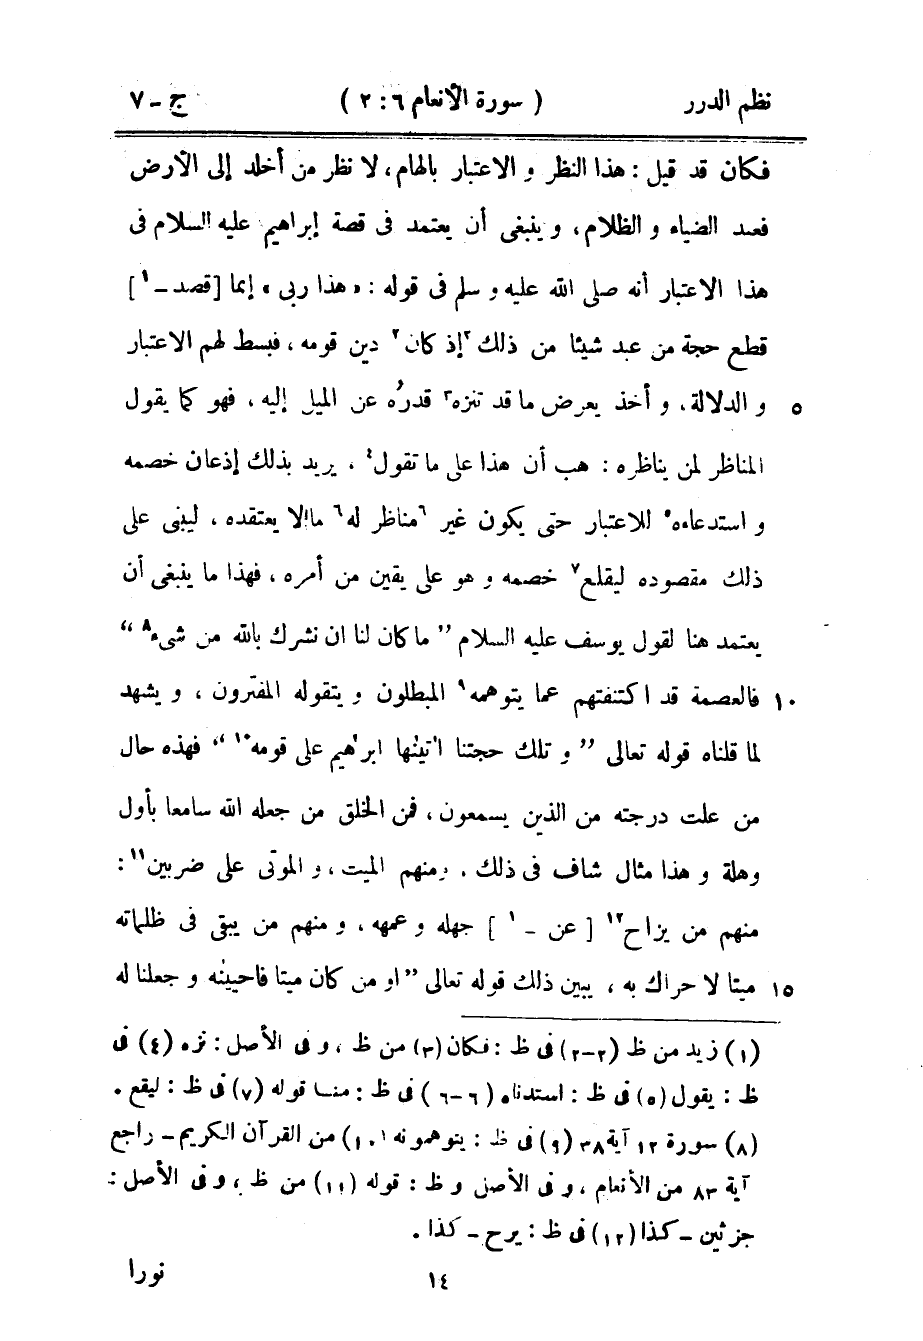 نظم الدرر ( سورة الأنعام ٦ : ٢ ) ج - ٧
فكان قد قيل : هذا النظر و الاعتبار بالهام، لا نظر من أخلد إلى الأرض
فعبد الضياء و الظلام، و ينبغى أن يعتمد فى قصة إبراهيم عليه السلام فى
هذا الاعتبار أنه صلى الله عليه و سلم فى قوله : « هذا ربى » إنما [ قصد - ١ ]
قطع حجة من عبد شيئا من ذلك ٢ إذ كان ٢ دين قومه ، فبسط لهم الاعتبار
٥ و الدلالة، و أخذ يعرض ما قد تنزه ٣ قدرُه عن الميل إليه ، فهو كما يقول
المناظر لمن يناظره : هب أن هذا على ما تقول ٤ ، يريد بذلك إذعان خصمه
و استدعاءه ٥ للاعتبار حتى يكون غير ٦ مناظر له ٦ ما لا يعتقده ، ليبنى على
ذلك مقصوده ليقلع ٧ خصمه و هو على يقين من أمره ، فهذا ما ينبغى أن
يعتمد هنا لقول يوسف عليه السلام ” ما كان لنا ان نشرك بالله من شىء ٨ “
١٠ فالعصمة قد اكتنفتهم عما يتوهمه ٩ المبطلون و يتقوله المفترون ، و يشهد
لما قلناه قوله تعالى ” و تلك حجتنا اٰتينٰها ابرٰهيم على قومه ١٠ “ فهذه حال
من علت درجته من الذين يسمعون ، فمن الخلق من جعله الله سامعا بأول
وهلة و هذا مثال شاف فى ذلك ، ومنهم الميت ، و الموتى على ضربين ١١ :
منهم من يزاح ١٢ [ عن - ١ ] جهله و عمهه ، و منهم من يبقى فى ظلماته
١٥ ميتا لا حراك به ، يبين ذلك قوله تعالى ” او من كان ميتا فاحيينٰه و جعلنا له
(١) زيد من ظ (٢-٢) فى ظ : فكان (٣) من ظ ، و فى الأصل : نزه (٤) فى
ظ : يقول (٥) فى ظ : استدناه (٦-٦) فى ظ : منا قوله (٧) فى ظ : ليقع .
(٨) سورة ١٢ آية ٣٨ (٩) فى ظ : يتوهمونه (١٠) من القرآن الكريم - راجع
آية ٨٣ من الأنعام ، و فى الأصل و ظ : قوله (١١) من ظ ، و فى الأصل :
جزئين - كذا (١٢) فى ظ : يرح - كذا .
١٤ نورا